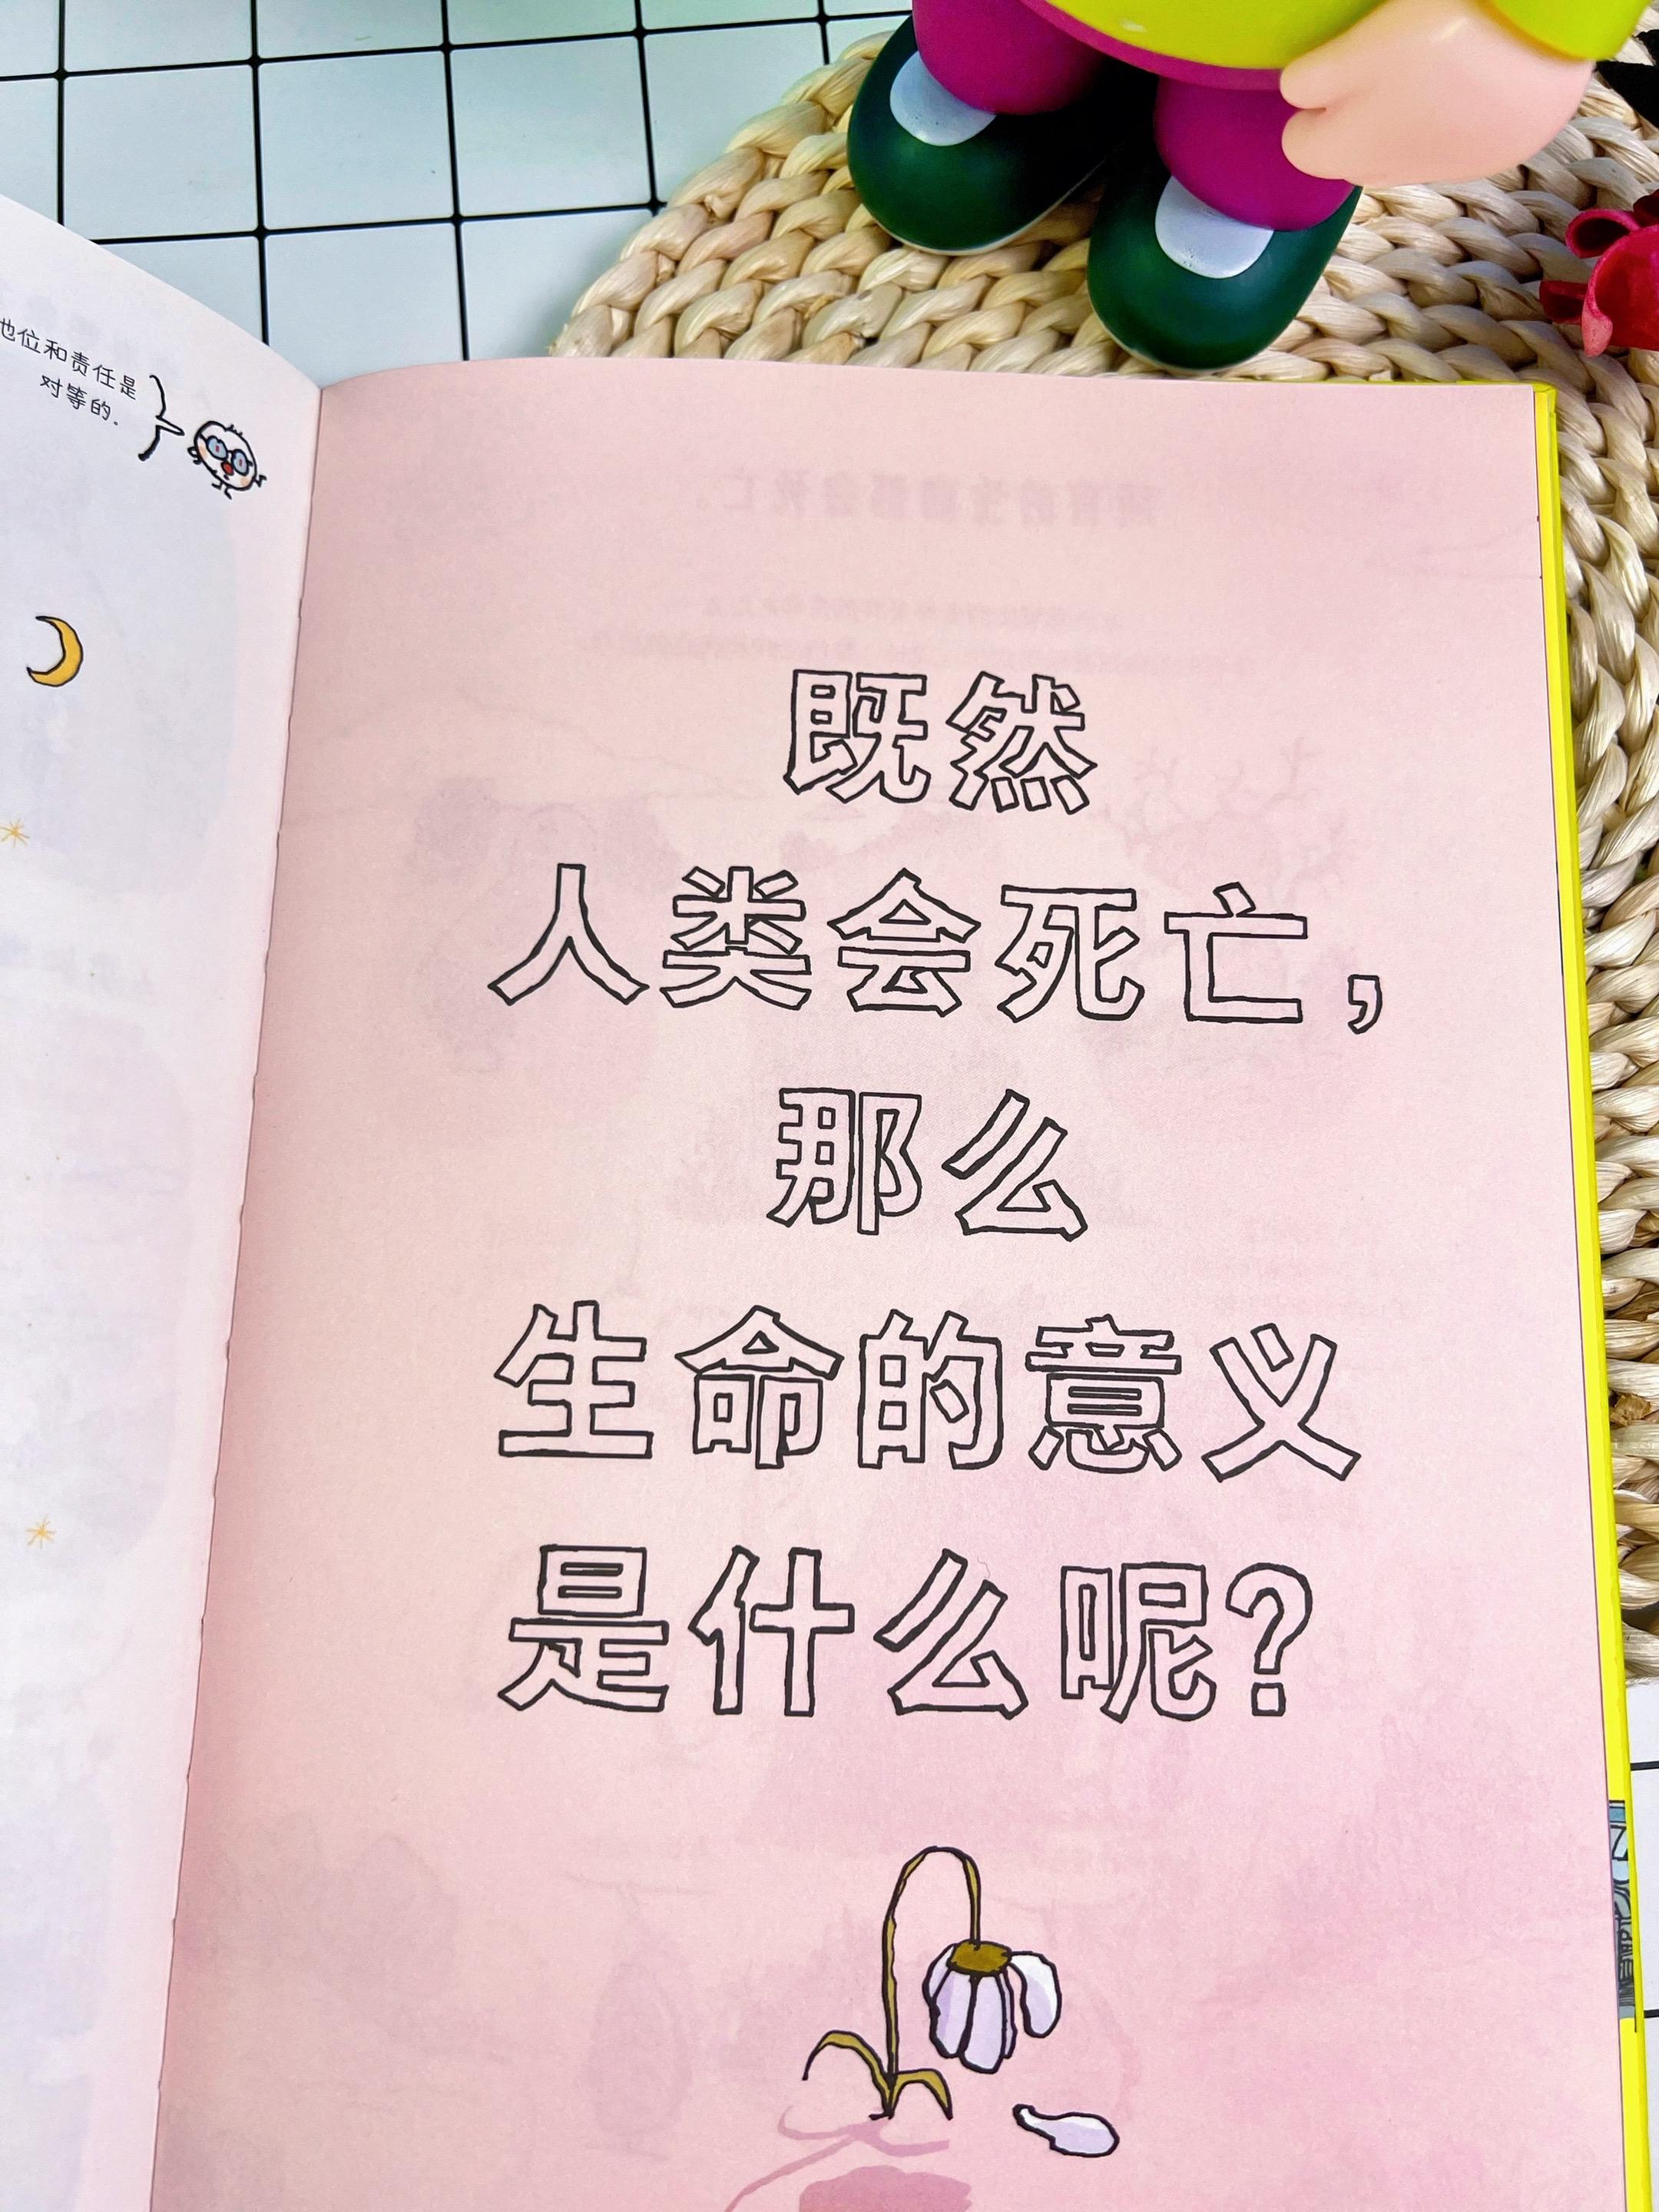 地位和责任是
对等的.
既然
人类会死亡，
那么
生命的意义
是什么呢？